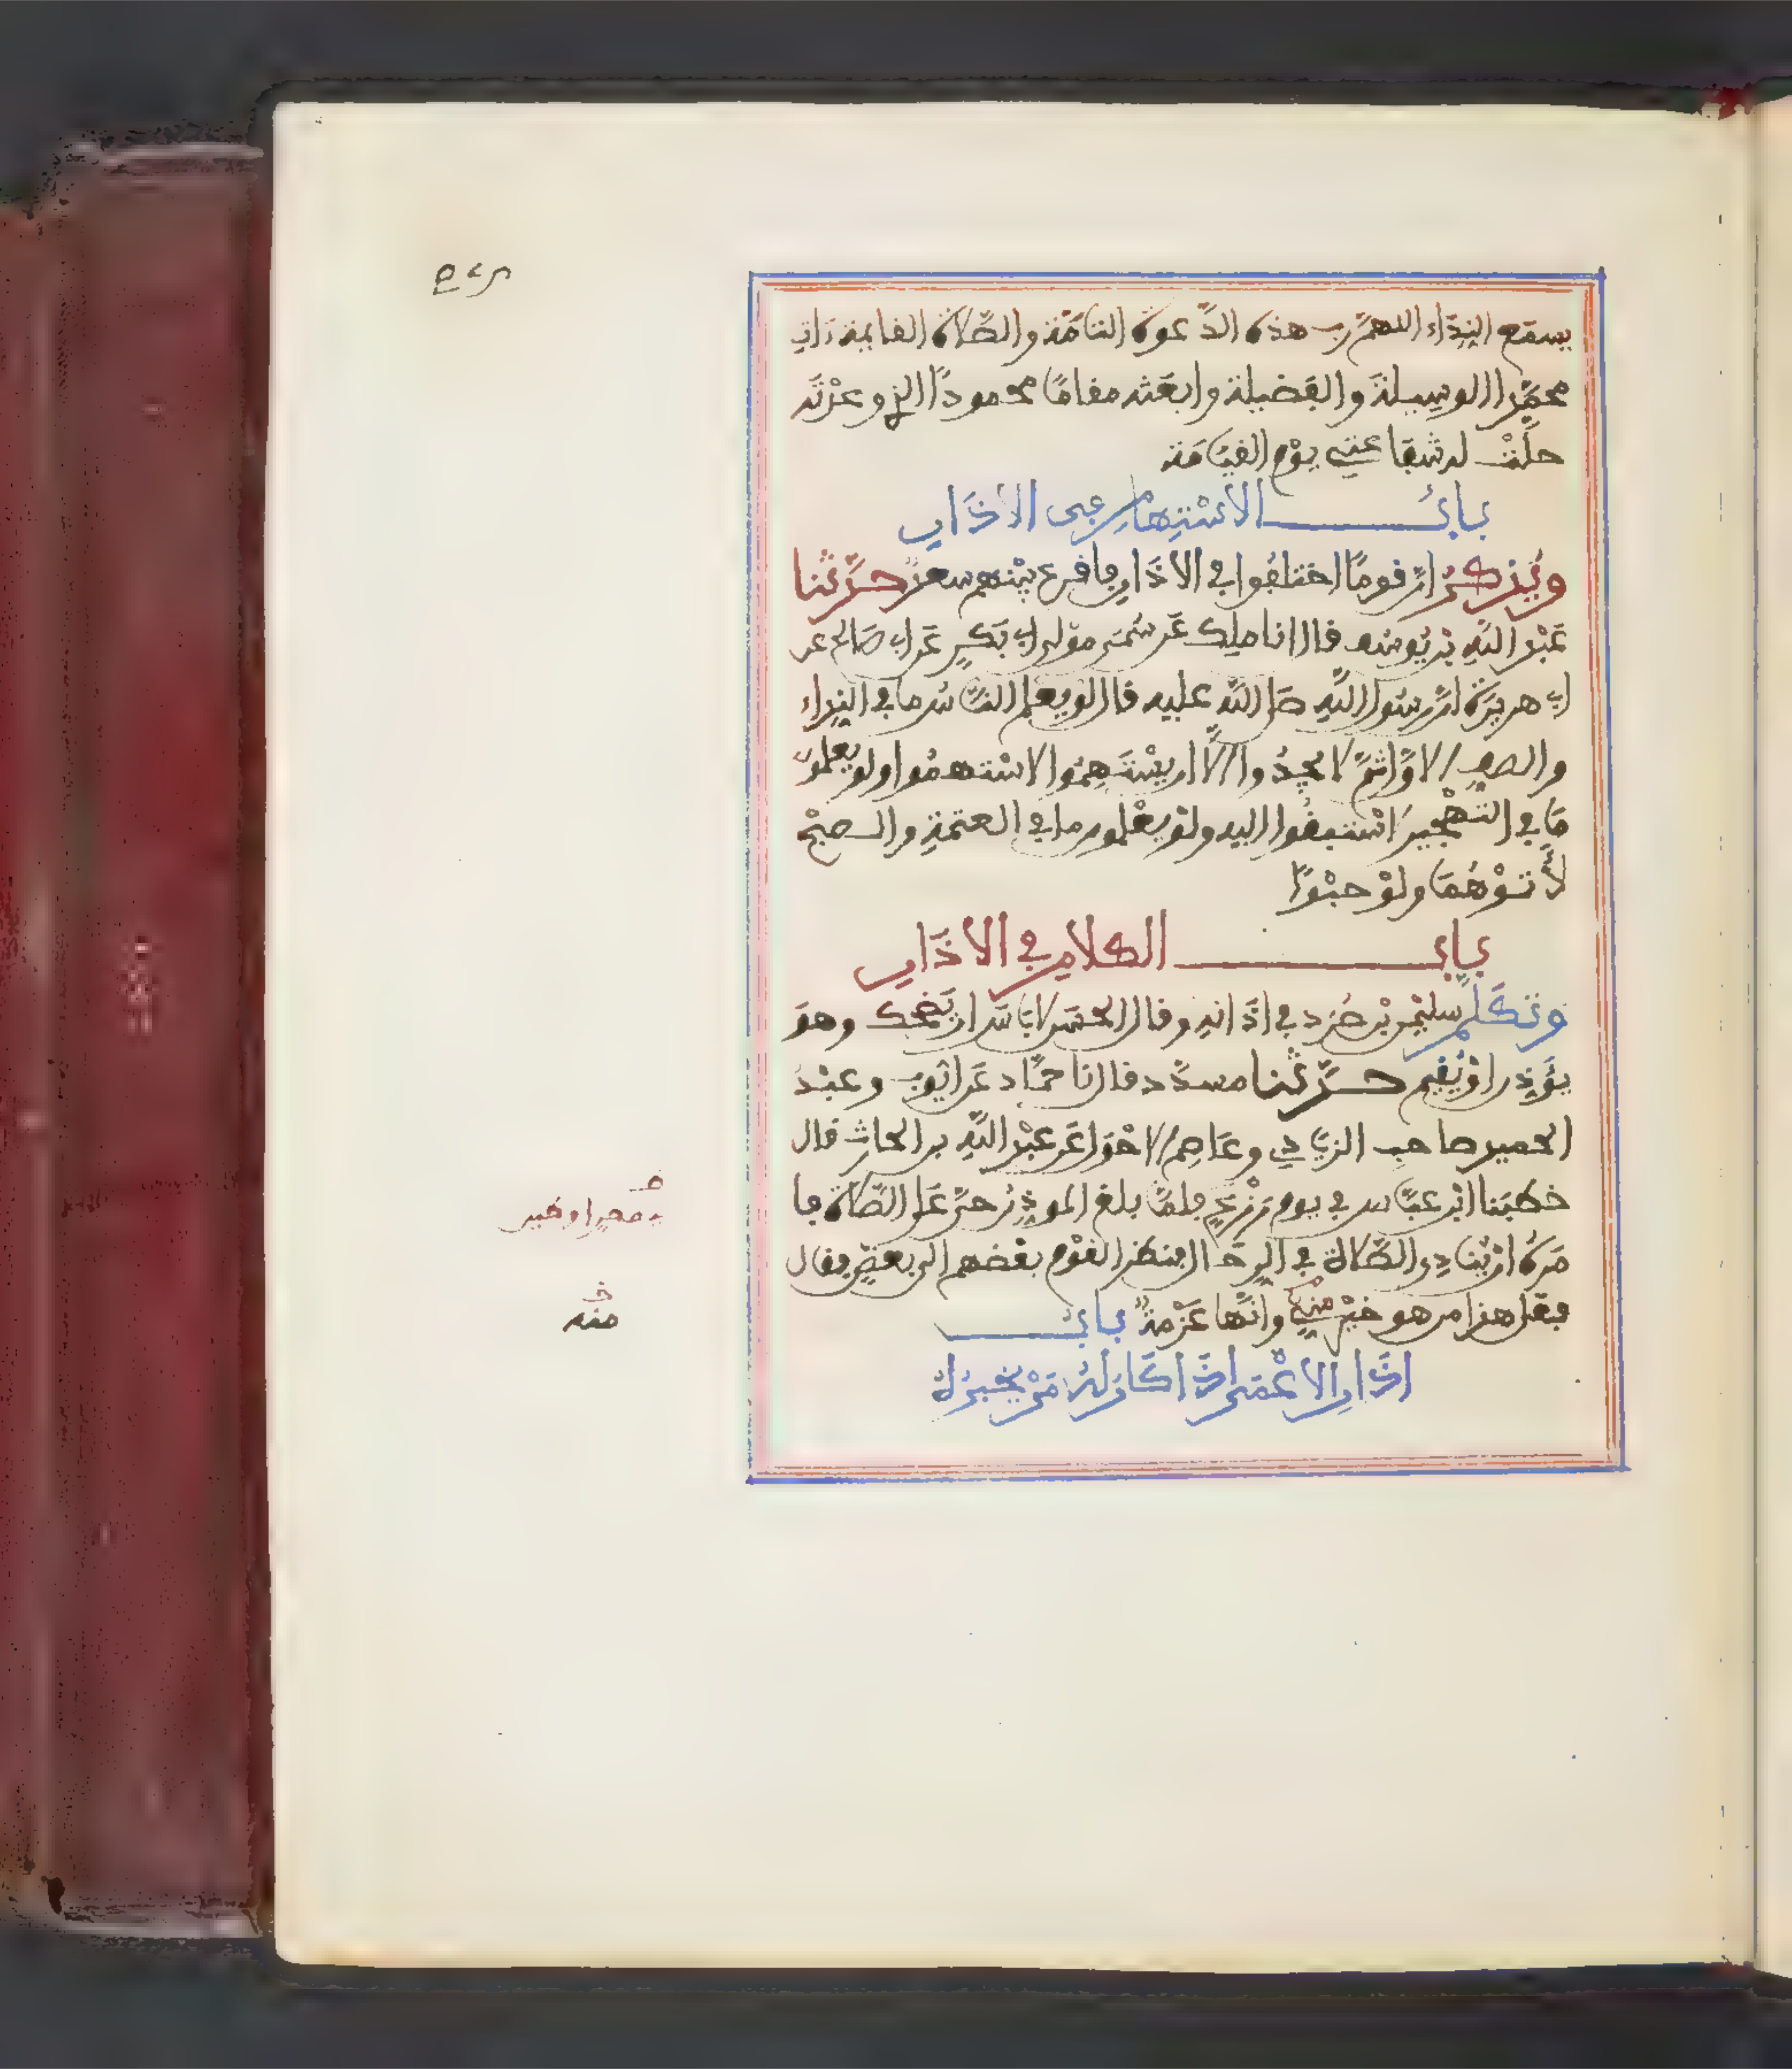 يسمع النداء اللهم رب هذه الدعوة التامة والصلاة القايمة ءات
محمدا الوسيلة والفضيلة وابعثه مقاما محمودا الذي وعدته
حلت له شفاعتي يوم القيامة
باب الاستهام في الاذان
ويذكر ان قوما اختلفوا في الاذان فاقرع بينهم سعد حدثنا
عبد الله بن يوسف قال انا ملك عن سمي مولى ابي بكر عن ابي صالح عن
ابي هريرة ان رسول الله صلى الله عليه قال لو يعلم الناس ما في النداء
والصف الاول ثم لا يجدوا الا ان يستهموا لاستهموا ولو يعلمون
ما في التهجير لاستبقوا اليه ولو يعلمون ما في العتمة والصبح
لأتوهما ولو حبوا
باب الكلام في الاذان
وتكلم سليمن بن صرد في اذانه وقال الحسن لا باس ان يضحك وهو
يؤذن او يقيم حدثنا مسدد قال نا حماد عن ايوب وعبد
الحميد صاحب الزيادي وعاصم الاحول عن عبد الله بن الحارث قال
خطبنا ابن عباس في يوم رزغ فلما بلغ الموذن حي على الصلاة فا
مره ان ينادي الصلاة في الرحال فنظر القوم بعضهم الى بعض فقال
فعل هذا من هو خير منه وانها عزمة باب
اذان الاعمى اذا كان له من يخبره
منه